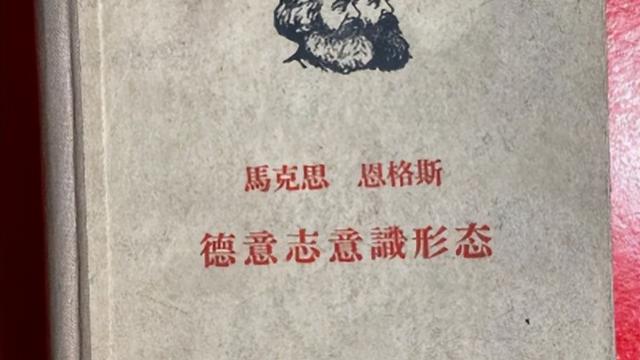 馬克思 恩格斯
德意志意識形态